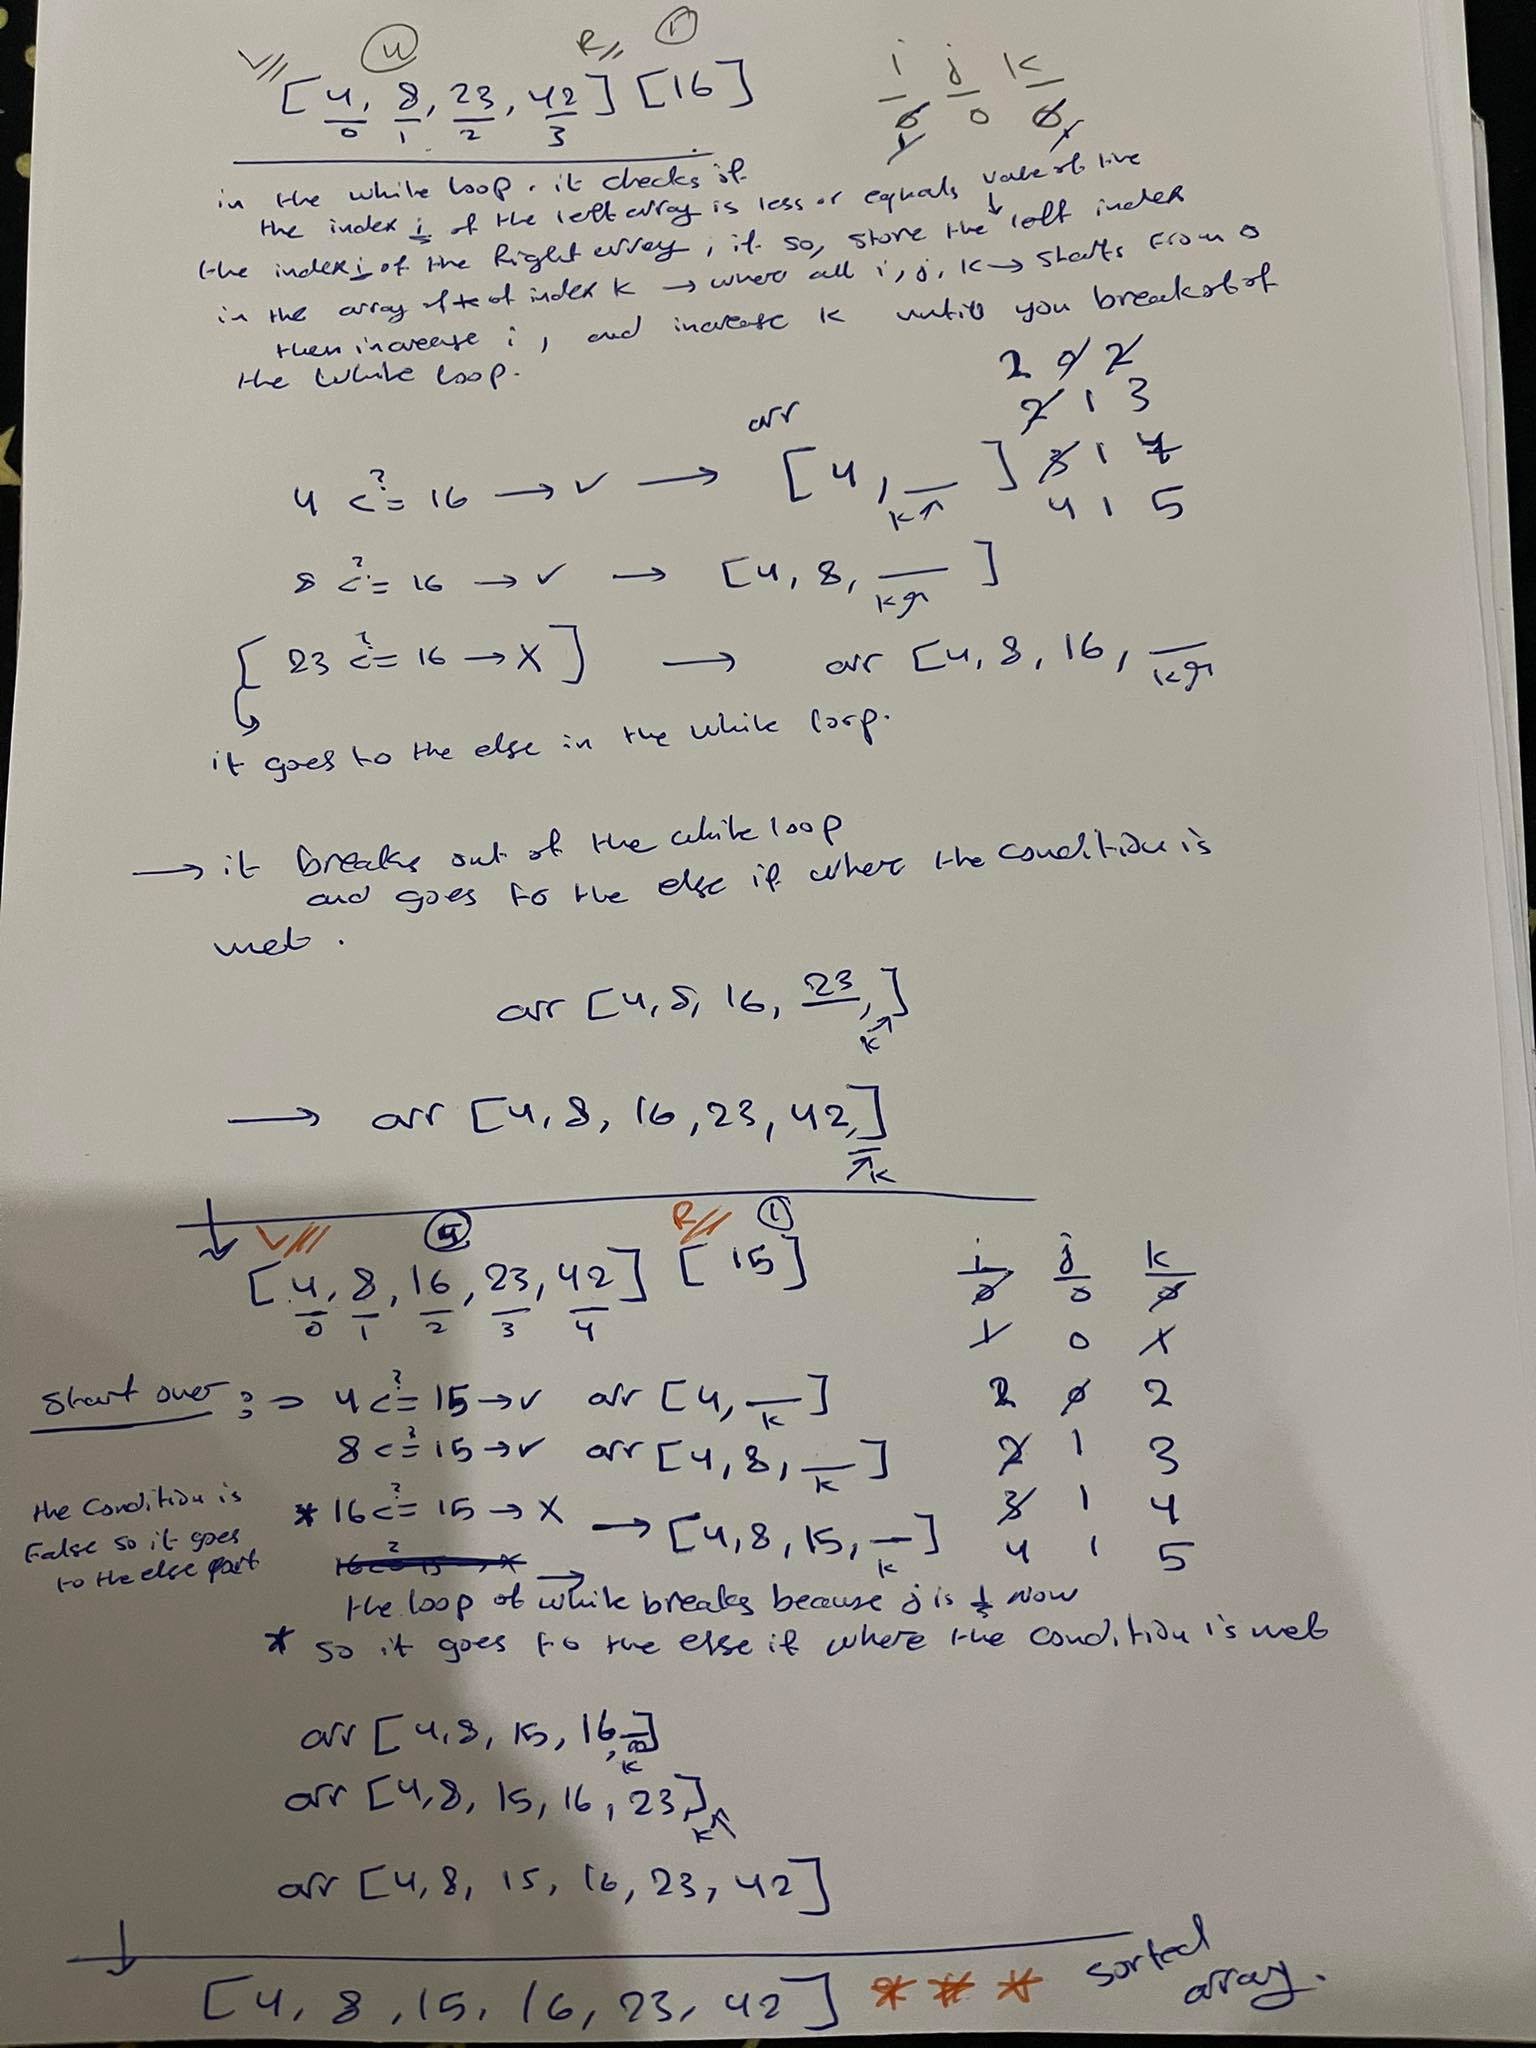 L 4 R 1
[4, 8, 23, 42] [16] i j k
0 1 2 3 0 0 0
1 1
in the while loop. it checks if
the index i of the left array is less or equals value of the
the index j of the Right array, if so, store the left index
in the array of index k → where all i, j, k → starts from 0
then increase i, and increase k until you break out of
the while loop.
2 0 2
arr 2 1 3
4 <= 16 → ✓ → [4, _ ] 3 1 4
? k 4 1 5
8 <= 16 → ✓ → [4, 8, _ ]
? k
[23 <= 16 → X] → arr [4, 8, 16, _
? k
it goes to the else in the while loop.
→ it breaks out of the while loop
and goes to the else if where the condition is
met.
arr [4, 8, 16, 23, ]
k
→ arr [4, 8, 16, 23, 42, ]
k
L 4 R 1
[4, 8, 16, 23, 42] [15] i j k
0 1 2 3 4 0 0 0
1 0 1
Start over : → 4 <= 15 → ✓ arr [4, _ ] 2 0 2
? k
8 <= 15 → ✓ arr [4, 8, _ ] 2 1 3
? k
the condition is
False so it goes
to the else part
* 16 <= 15 → X → [4, 8, 15, _ ] 3 1 4
? k 4 1 5
the loop of while breaks because j is 1 now
* so it goes to the else if where the condition is met
arr [4, 8, 15, 16, _]
k
arr [4, 8, 15, 16, 23, ]
k
arr [4, 8, 15, 16, 23, 42]
[4, 8, 15, 16, 23, 42] * * * sorted
array.